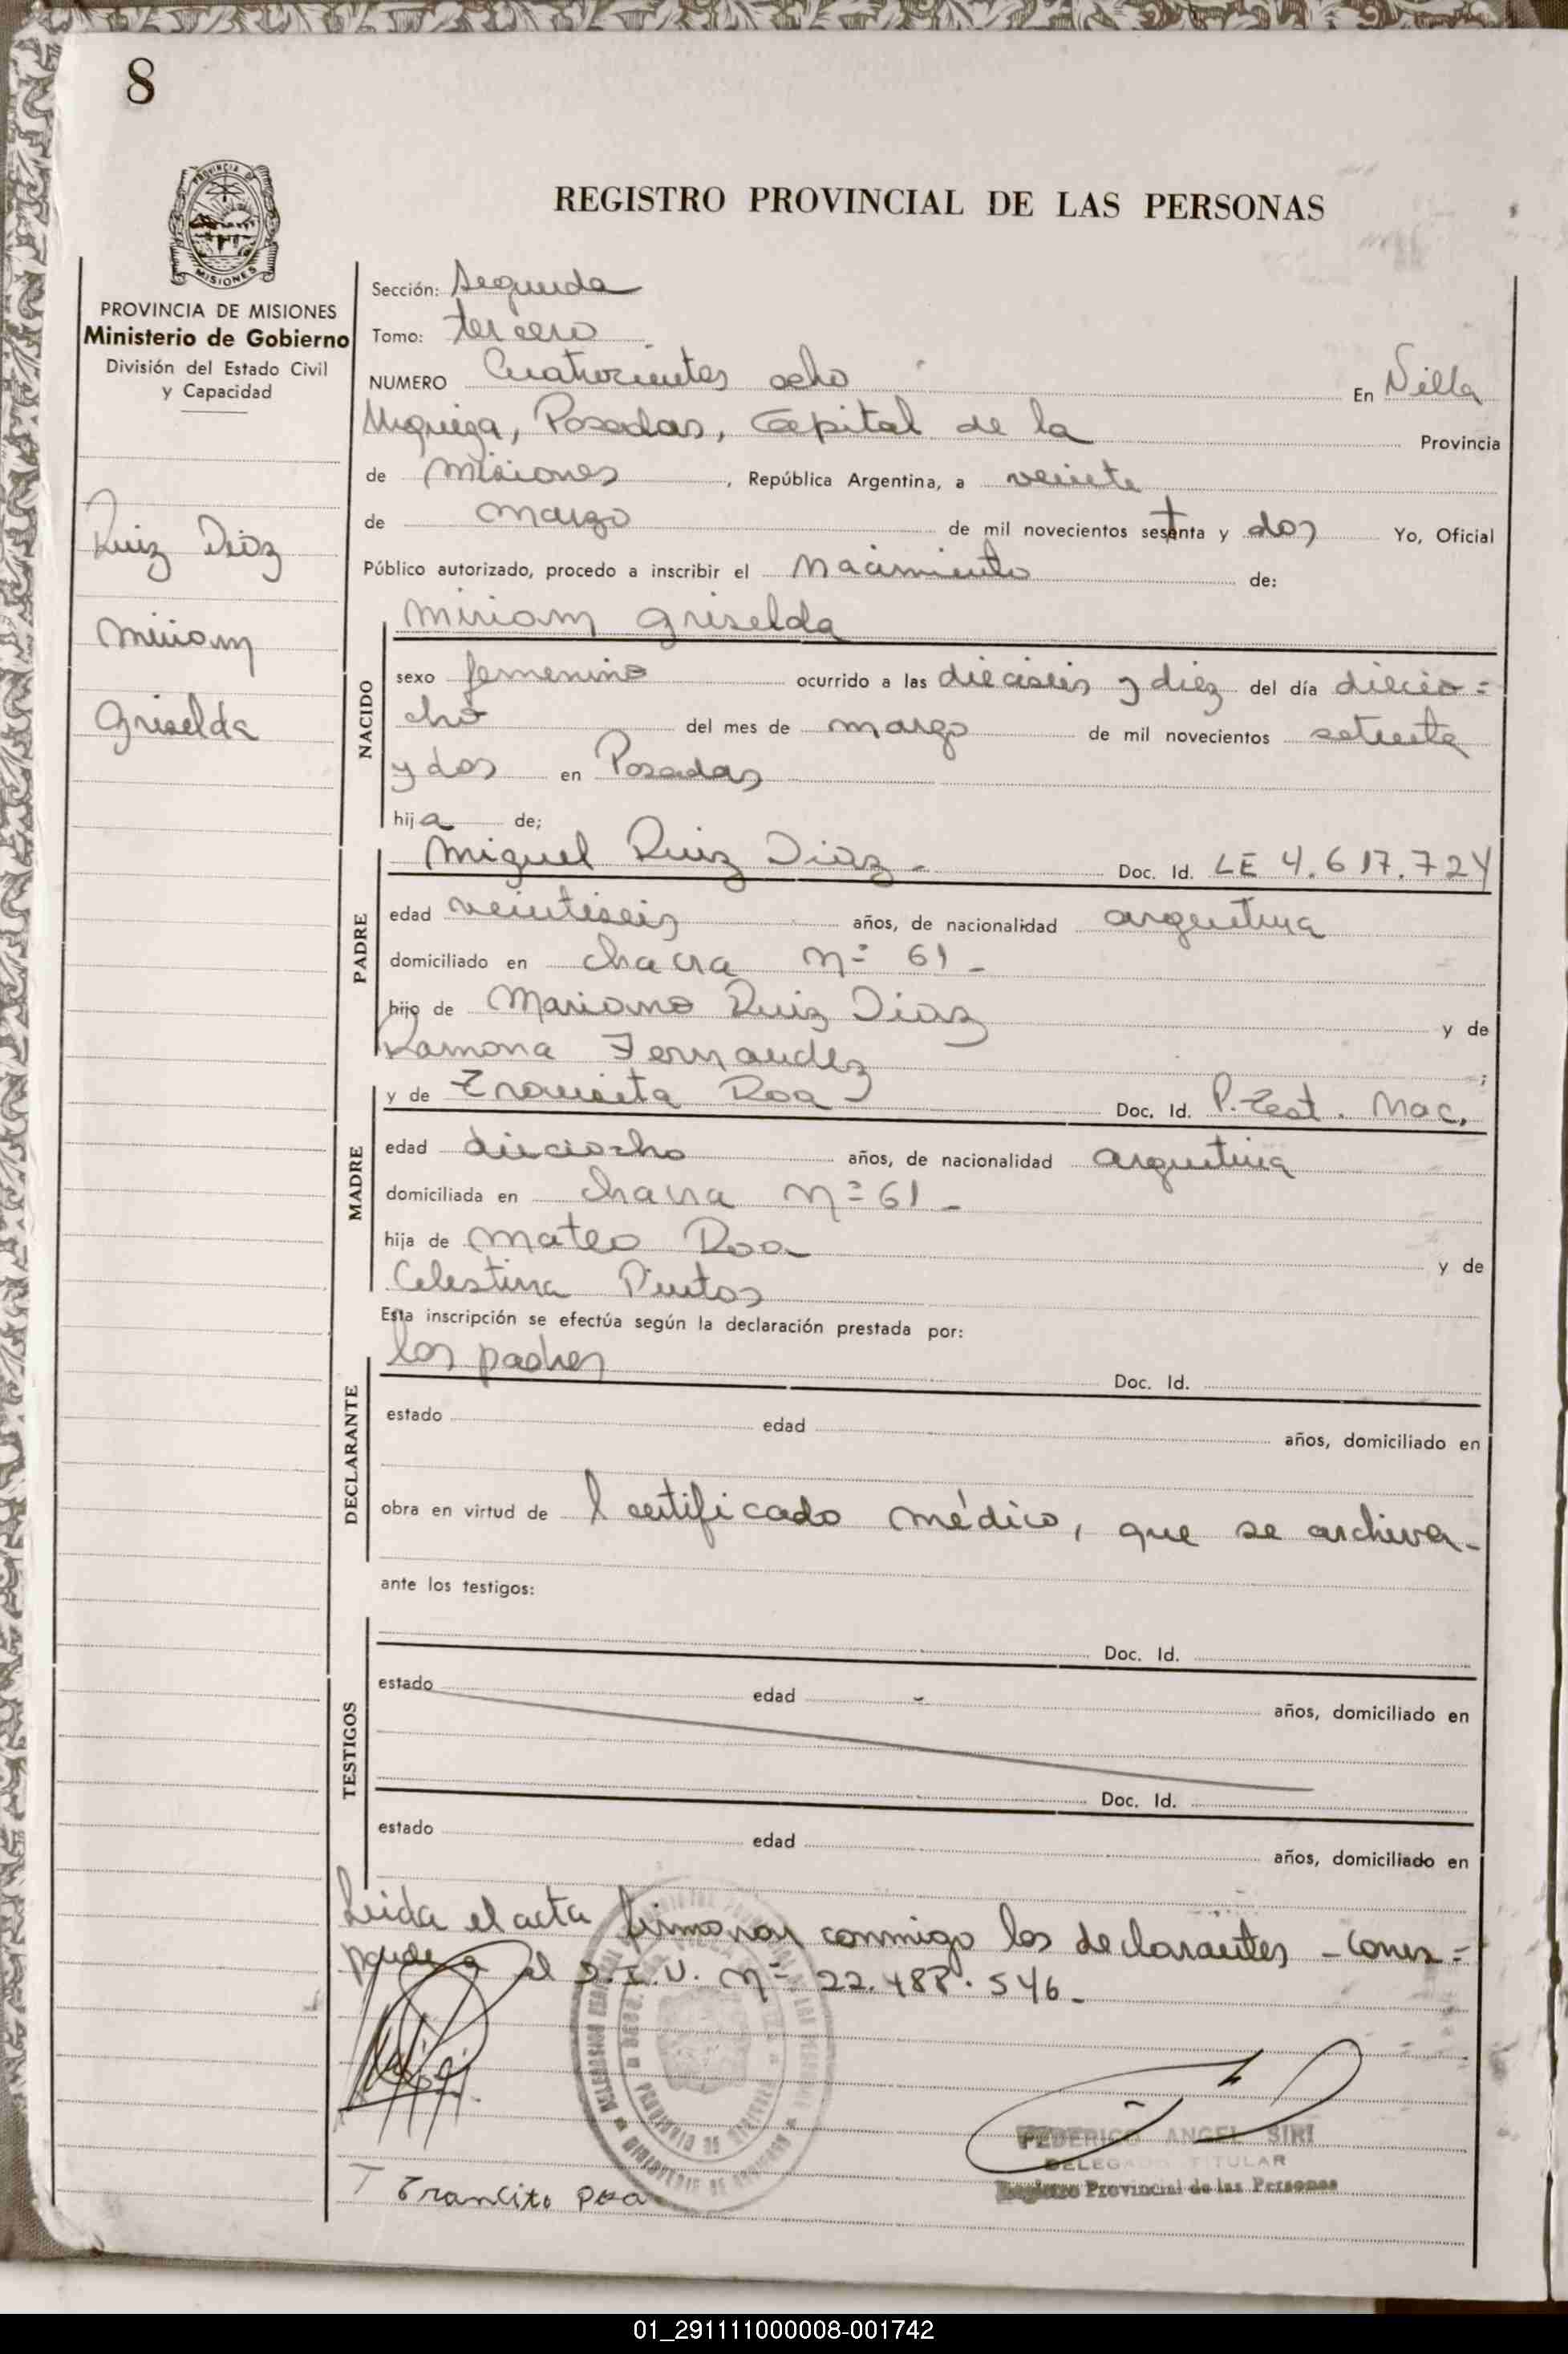 8
PROVINCIA DE
MISIONES
REGISTRO PROVINCIAL DE LAS PERSONAS
PROVINCIA DE MISIONES
Ministerio de Gobierno
División del Estado Civil
y Capacidad
Ruiz Diaz
Miriam
Griselda
Sección: Segunda
Tomo: tercero
NUMERO Cuatrocientos ocho En Villa
Urquiza, Posadas, Capital de la Provincia
de Misiones, República Argentina, a veinte
de marzo de mil novecientos setenta y dos Yo, Oficial
Público autorizado, procedo a inscribir el Nacimiento de:
NACIDO
Miriam Griselda
sexo femenino ocurrido a las dieciseis y diez del día diecio=
cho del mes de marzo de mil novecientos setenta
y dos en Posadas
hija de;
PADRE
Miguel Ruiz Diaz - Doc. Id. LE 4.617.724
edad veintiseis años, de nacionalidad argentina
domiciliado en chacra nº 61 -
hijo de Mariano Ruiz Diaz y de
Ramona Fernandez ;
MADRE
y de Roa Doc. Id. P. Mac.
edad dieciocho años, de nacionalidad argentina
domiciliada en chacra nº 61 -
hija de Mateo Roa y de
Celestina Pintos
Esta inscripción se efectúa según la declaración prestada por:
DECLARANTE
los padres Doc. Id.
estado edad años, domiciliado en
obra en virtud de l certificado médico, que se archiva-
ante los testigos:
TESTIGOS
Doc. Id.
estado edad años, domiciliado en
Doc. Id.
estado edad años, domiciliado en
Leida el acta firmaron conmigo los declarantes - Corres=
ponde al D.I.U. nº 22.488.546 -
FEDERICO ANGEL SIRI
DELEGADO TITULAR
Registro Provincial de las Personas
Trancito Roa
01_291111000008-001742